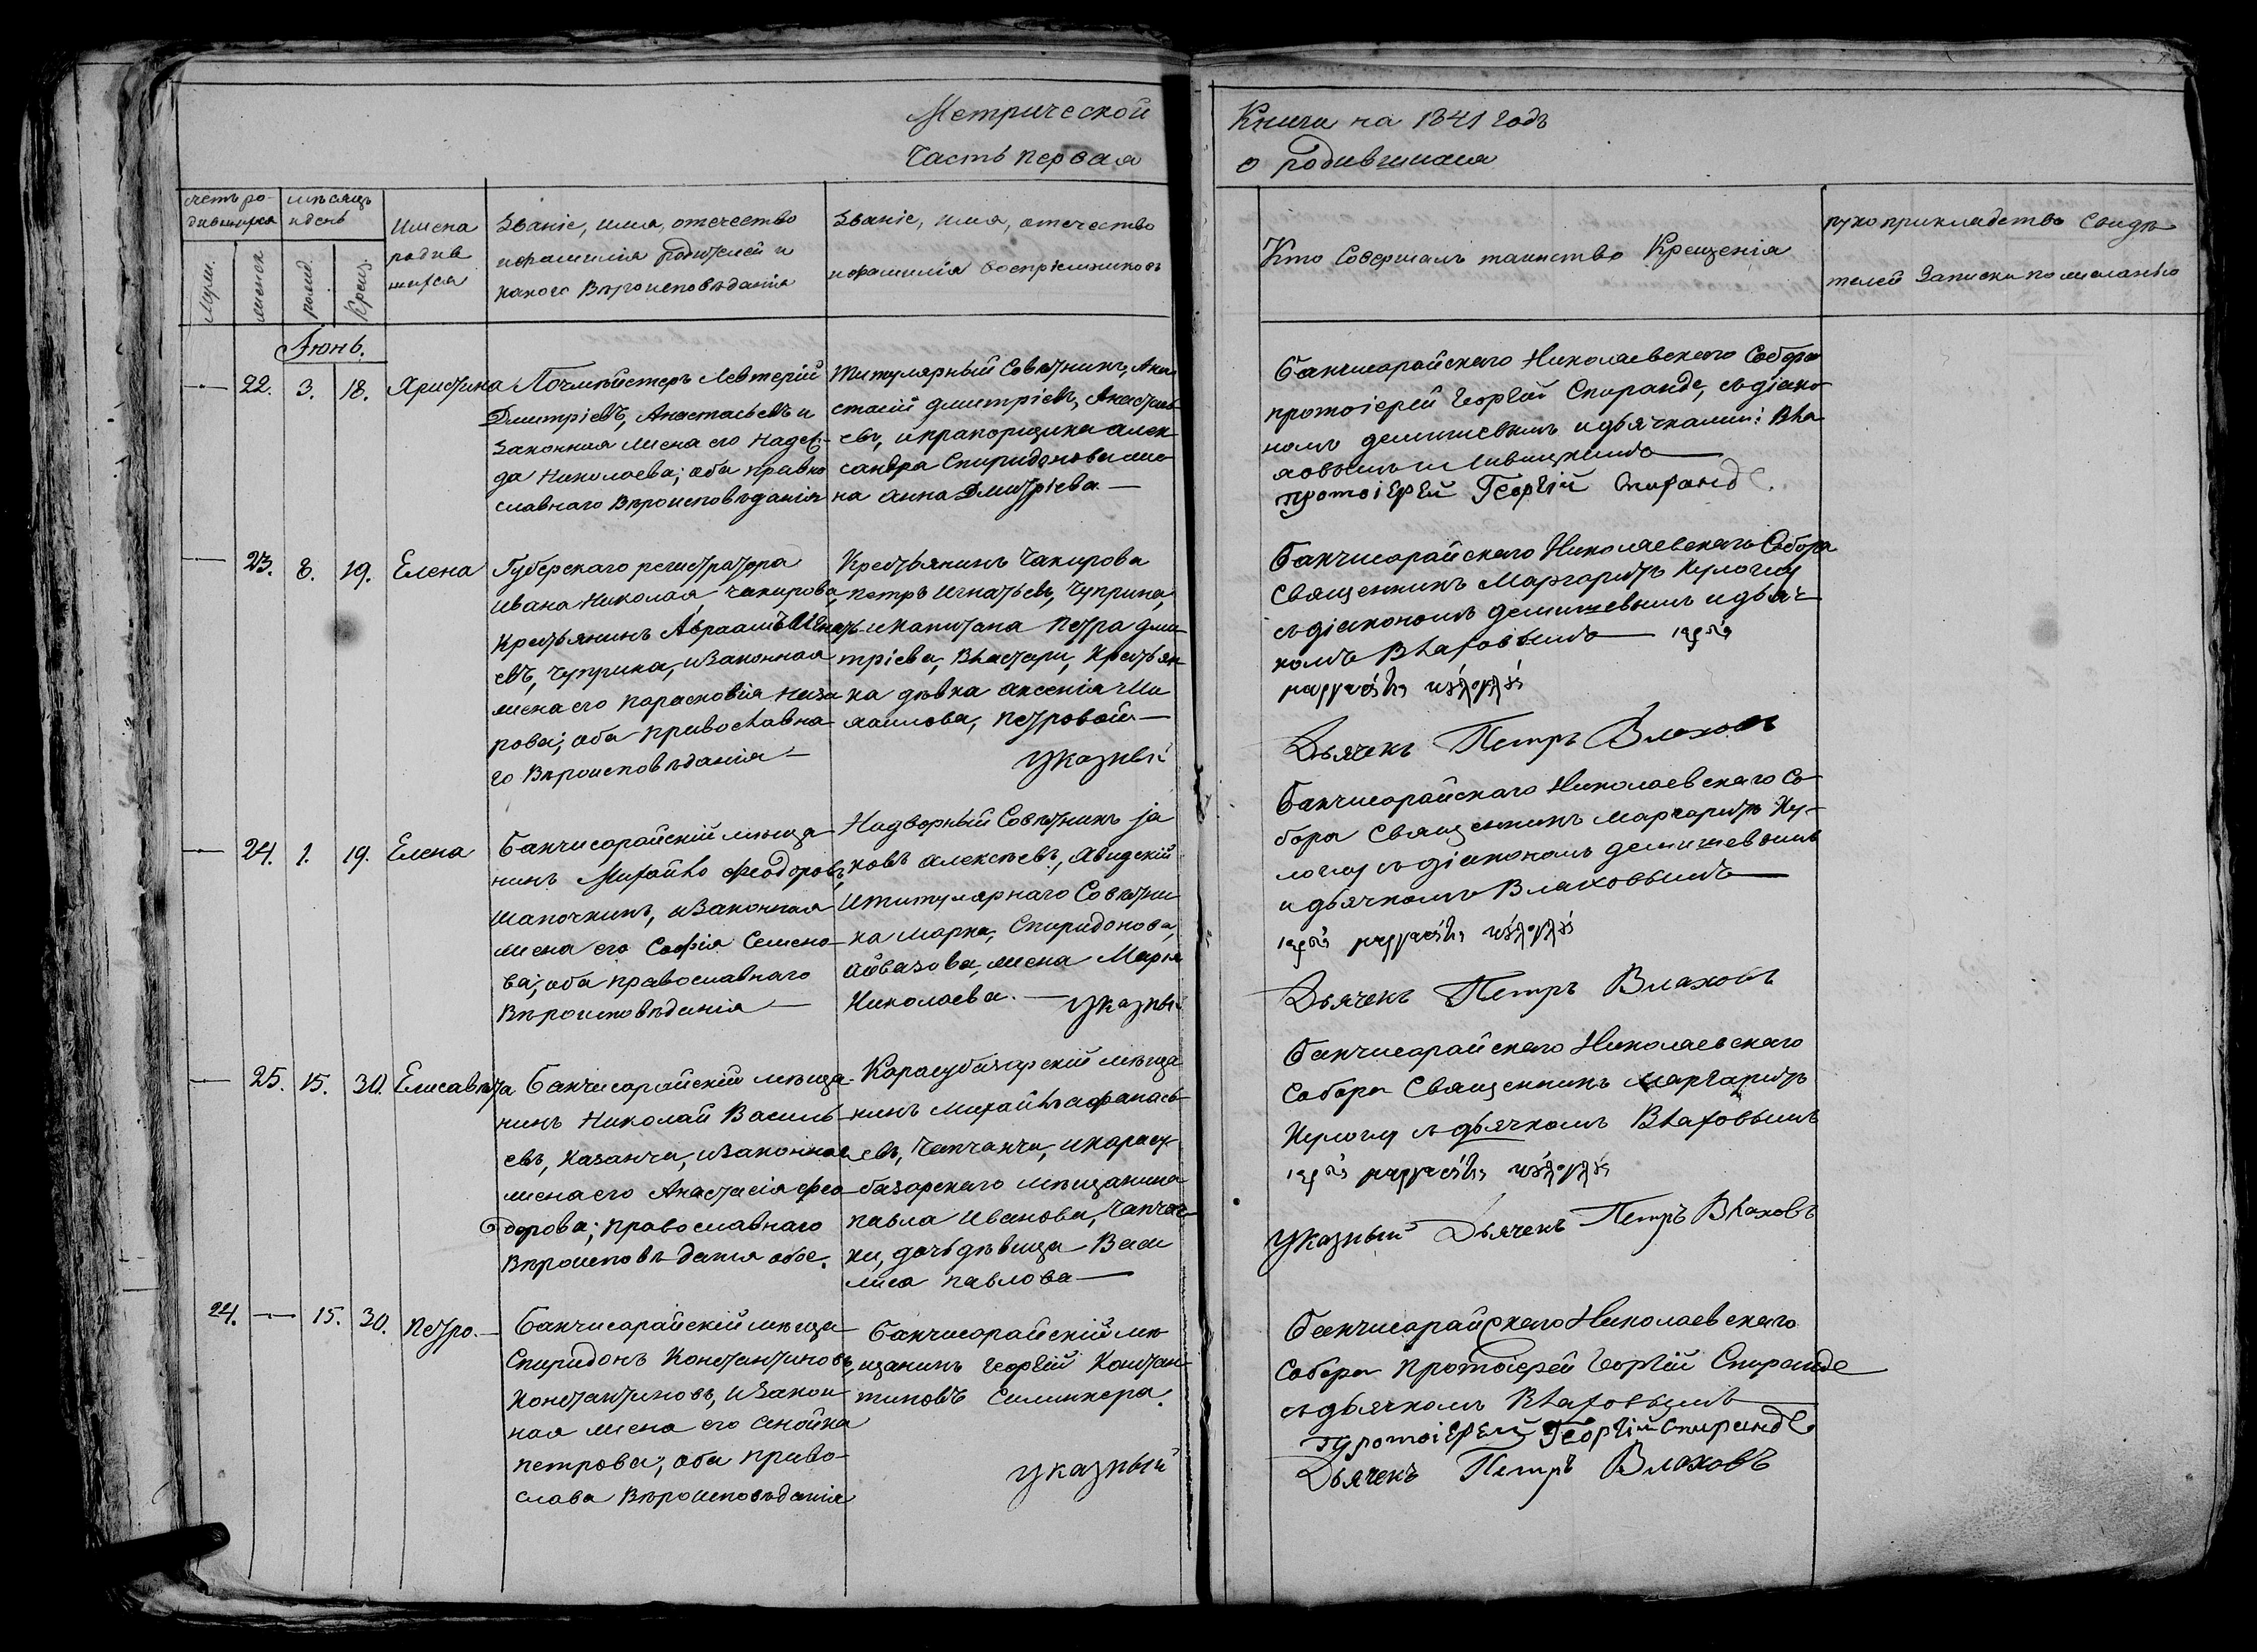 Метрической
Часть первая
Книги на 1841 годъ
о родившихся
счетъ ро-
дившихся
мѣсяцъ
и день
Имена
родив
шихся
Званіе, имя, отечество
и фамилія родителей и
какого Вѣроисповѣданія
Званіе, имя, отечество
и фамилія Воспріемниковъ
Кто Совершалъ таинство Крещенія
рукоприкладство Свидѣ
телей Записки по желанію
Іюнь.
22. 3. 18. Христина
Почмейстеръ Левтерій
Дмитріевъ, Анастасьевъ и
Законная жена его Надеж-
да Николаева; оба право
славнаго Вѣроисповѣданія
Титулярный Совѣтникъ, Ана
стасій Дмитріевъ, Анастась
евъ, и прапорщика алек
сандра Спиридонова же
на Анна Дмитріева.
Бахчисарайскаго Николаевскаго Собора
протоіерей Георгій Спиранде, съ діако
номъ Демишевымъ и дьячками: Вла
ховымъ и Левицкимъ
протоіерей Георгій Спиранде.
23. 8. 19. Елена
Губерскаго регистратора
Ивана Николая, Чакирова,
Крестьянинъ Авраамъ Игнать
евъ, Чуприна, и Законная
жена его Парасковія Наза
рова; оба православна
го Вѣроисповѣданія
Крестьянинъ Чакирова
Петръ Игнатьевъ, Чуприна,
и капитана Петра Дми
тріева, Властари, Крестьян
ка дѣвка Аксенія Ми
хаилова, Петровой
Указный
Бахчисарайскаго Николаевскаго Собора
Священникъ Маргаритъ Кулоглу
съ діакономъ Демишевымъ и дьяч
комъ Влаховымъ
Дьячекъ Петръ Влаховъ
24. 1. 19. Елена
Бахчисарайскій мѣща
нинъ Михайло Феодоровъ,
Шапочкинъ, и Законная
жена его Софія Семено
ва; оба православнаго
Вѣроисповѣданія
Надворный Совѣтникъ Ja
ковъ Алексѣевъ, Авидскій
и титулярнаго Совѣтни
ка Марка, Спиридонова,
Айвазова, жена Марія
Николаева.
Указный
Бахчисарайскаго Николаевскаго Со
бора Священникъ Маргаритъ Ку-
логлу съ діакономъ Демишевымъ
и дьячкомъ Влаховымъ
Дьячекъ Петръ Влаховъ
25. 15. 30. Елисавѣта
Бахчисарайскій мѣща
нинъ Николай Василь
евъ, Казанчи, и Законная
жена его Анастасія Фео
дорова; православнаго
Вѣроисповѣданія обое.
Карасубазарскій мѣща
нинъ Михайло Афанась
евъ, Чапчакчи, и карасу
базарскаго мѣщанина
Павла Иванова, Чапчак
чи, дочь дѣвица Васи
лиса Павлова
Бахчисарайскаго Николаевскаго
Собора Священникъ Маргаритъ
Кулоглу съ дьячкомъ Влаховымъ
Указный Дьячекъ Петръ Влаховъ
24. 15. 30. Петро.
Бахчисарайскій мѣща
Спиридонъ Константиновъ,
Константиновъ, и Закон
ная жена его Анойка
Петрова; оба право-
слава Вѣроисповѣданія
Бахчисарайскій мѣ
щанинъ Георгій Констан
тиновъ Силинкера.
Указный
Бахчисарайскаго Николаевскаго
Собора Протоіерей Георгій Спиранде
съ дьячкомъ Влаховымъ
протоіерей Георгій Спиранде
Дьячекъ Петръ Влаховъ